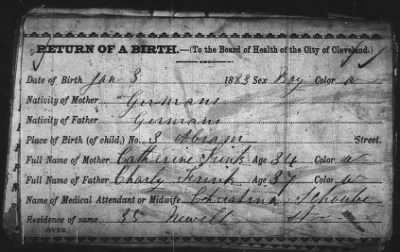 RETURN OF A BIRTH.—(To the Board of Health of the City of Cleveland.)
Date of Birth Jan 3 1883 Sex Boy Color w
Nativity of Mother Germans
Nativity of Father Germans
Place of Birth (of child,) No. 3 Abram Street.
Full Name of Mother Catherine Funk Age 34 Color w
Full Name of Father Charly Funk Age 37 Color w
Name of Medical Attendant or Midwife Christina
Residence of same 35 Newell St
(OVER.)